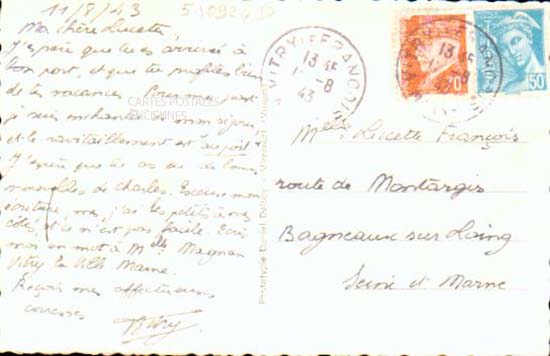 11/8/43
Ma chère Lucette,
J'espère que tu es arrivée à
bon port, et que tu profites bien
de tes vacances. Pour ma part
je suis enchantée de mon séjour
et le ravitaillement est au poil
J'espère que tu as eu de bonnes
nouvelles de Charles. Excuse mon
écriture, mais j'ai les petits à mes
côtés, et ce n'est pas facile. Ecris
moi un mot à Mlle Magnan
Vitry la Ville Marne.
Reçois mes affectueuses
caresses
CARTES POSTALES
ANCIENNES
VITRY-LE-FRANÇOIS
13 45
-8
43
70
50
Mlle Lucette François
route de Montargis
Bagneaux sur Loing
Seine et Marne